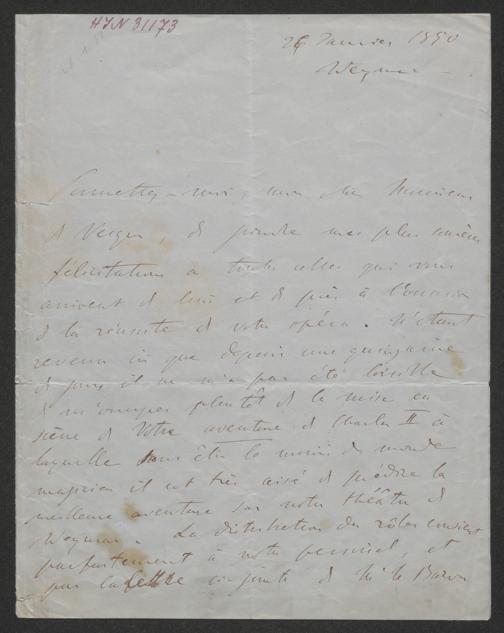 HJN 31173
26 Janvier 1850
Weymar
Permettez-moi, mon cher Monsieur
de Vesque, de joindre mes plus sincères
félicitations à toutes celles qui vous
arrivent de loin et de près à l'occasion
de la réussite de votre opéra. N'étant
revenu ici que depuis une quinzaine
de jours il ne m'a pas été loisible
de m'occuper plutôt de la mise en
scène de Votre aventure de Charles II à
laquelle sans être le moins du monde
magicien il est très aisé de prédire la
meilleure aventure sur notre théâtre de
Weymar. La distribution des rôles convient
parfaitement à notre personnel, et
par la lettre ci-jointe de Mr le Baron